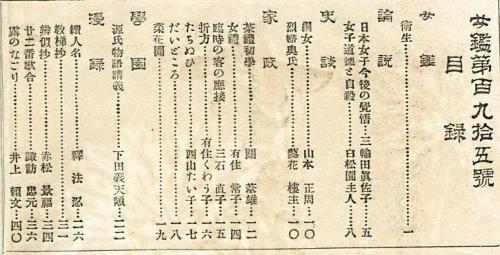 女鑑第百九拾五號
目錄
女鑑
衛生………一
論說
日本女子今後の覺悟…三輪田眞佐子…五
女子道德と自殺……白松園主人…八
史談
湯女………山本 正周…一〇
烈婦奧氏………藝花 樓主…一〇
家政
茶禮初學………關 葦雄…一二
女禮………有住 常子…一四
臨時の客の應接……三石 直子…一五
折方………有住くわう子…一六
たちぬひ………四山たい子…一七
だいどころ………一八
菜花園………一九
學園
源氏物語講義……下田義天類…二二
漫錄
纎人名………釋 法忍…二六
敎梯抄………三一
辨似抄………赤松 景福…三四
廿二番歌合………諏訪 忠元…三六
露のなごり………井上 賴文…四〇